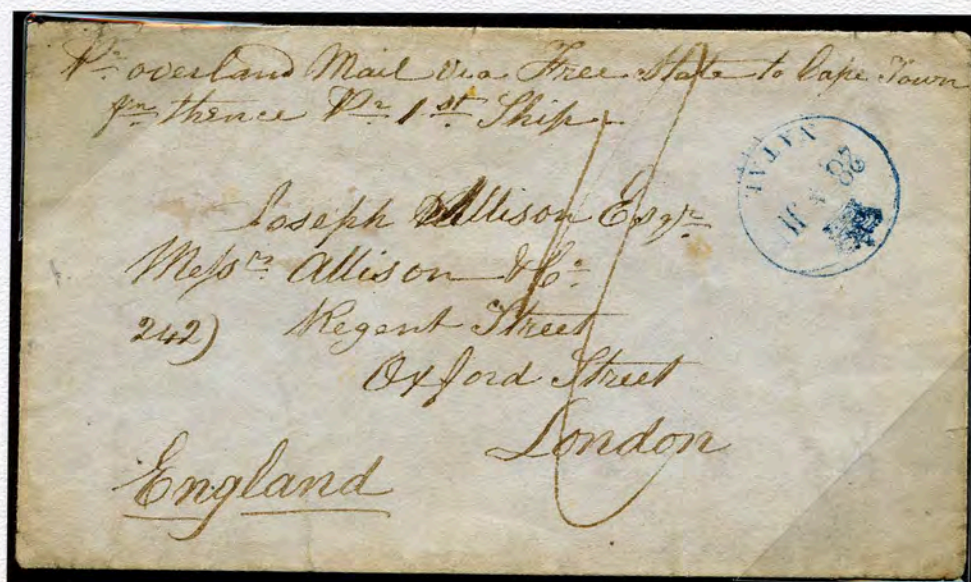 Pr. overland Mail via Free State to Cape Town
fm thence Pr. 1st Ship
NATAL
28
Joseph Allison Esqre
Messrs Allison & Co.
242) Regent Street
Oxford Street
London
England